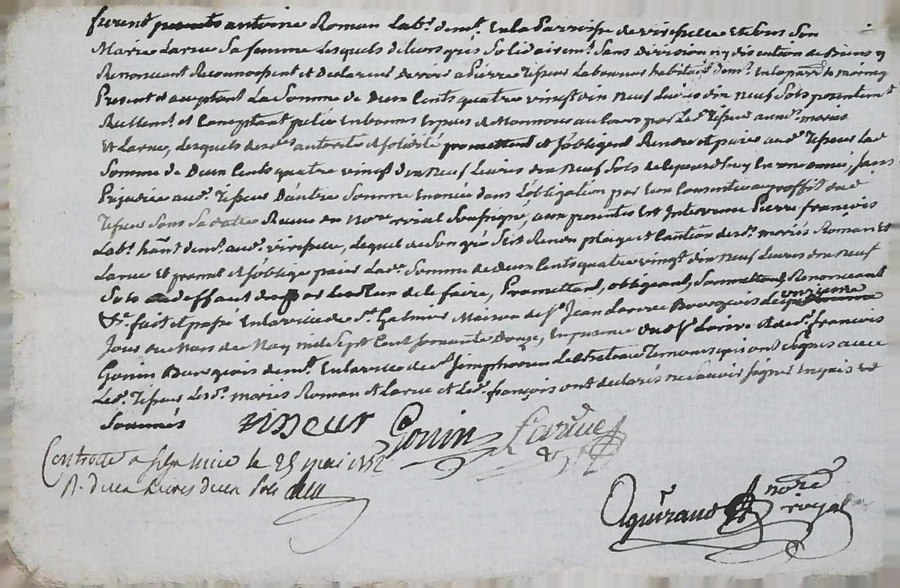 furent presents antoine Roman Lab.r dem.t En la Parroisse de viricelle et sous son
Marie Larue Sa femme Lesquels de leurs grés Solidairem.t Sans division ny discution de Biens y
Renonceant Reconnoissent et Declarent devoir a Pierre Tisseur Laboureur habitant dem.t En la par.sse de
Present et aceptant La Somme de Deux Cents quatre vingt dix neuf Livres dix neuf Sots presentem.t
Reellem.t et Comptant En bonnes Especes de Monnoye au Cours par Led. Tisseur aux d. mariés
et Larue, Lesquels de ses autorité et solidité promettent et s'obligent Rendre et paier aud. Tisseur Lad.
Somme de Deux Cents quatre vingt dix Neuf Livres dix Neuf Sols de Cejourdhuy En une année, Sans
Préjudice aud. Tisseur D'autre Somme Enoncée dans L'obligation par eux Consentie au proffit dud.
Tisseur Sous Sa datte Reçue du No.re royal Soussigné, aux presentes Est Intervenu Pierre françois
Lab.r hant dem.t aud. viricelle, Lequel de Son gré S'est Rendu plaige et Caution desd. mariés Roman et
Larue Et promet et s'oblige paier Lad. Somme de deux Cents quatre vingt dix Neuf Livres dix neuf
Sols a deffaut de le faire, Promettant, obligeant, Soumettant, Renonceant
&c. fait et passé En la ville de S.t Galmier Maison de S.r Jean Larive Bourgeois Le onzieme
Jour du Mois de May mil Sept Cent Soixante Douze, En presence dud. S.r Larive et de S.r francois
Gonin Bourgeois dem.t En la ville de S.t Simphorien Le Chateau Temoins qui ont signés avec
Led. Tisseur Lesd. mariés Roman et Larue et Led. françois ont declarés ne Savoir signer Enquis et
Sommés
Tisseur Gonin Larive
Controllé a S.t Galmier le 25 mai 1772
R. deux Livres deux Sols
Aguiraud no.re
royal